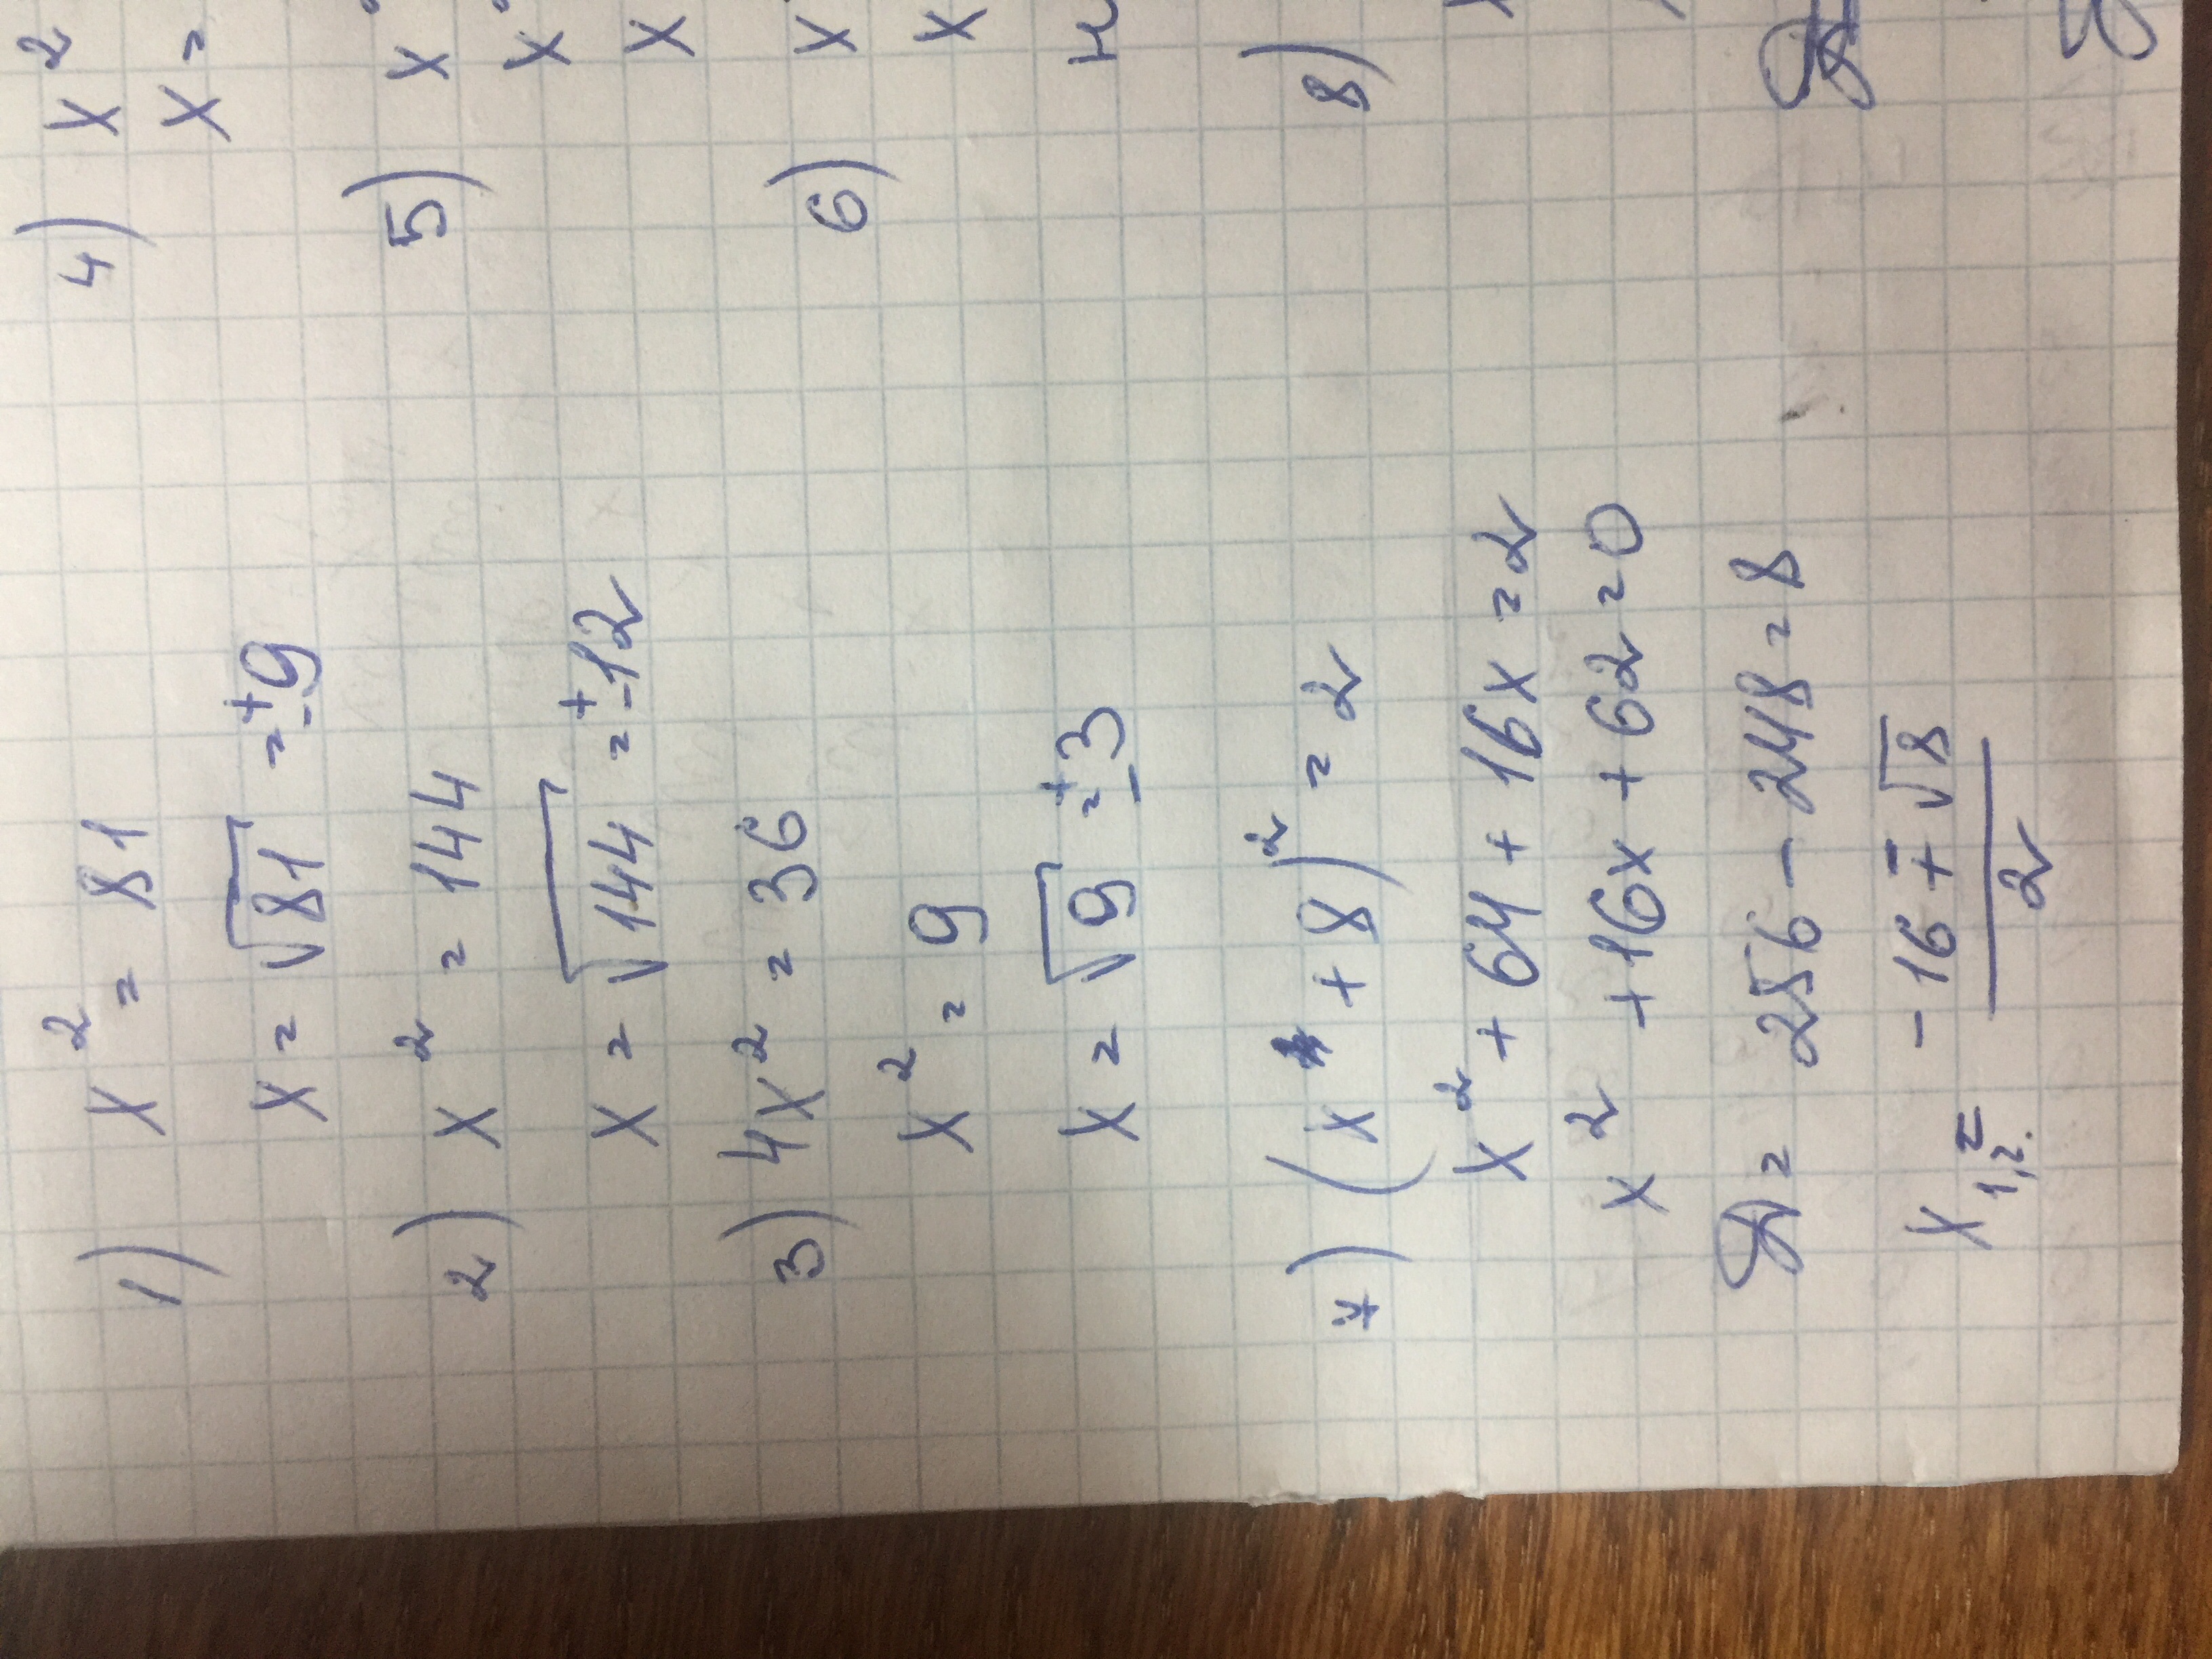 1) x² = 81
x = √81 = ±9
2) x² = 144
x = √144 = ±12
3) 4x² = 36
x² = 9
x = √9 = ±3
7) (x + 8)² = 2
x² + 64 + 16x = 2
x² + 16x + 62 = 0
D = 256 - 248 = 8
x₁,₂ = (-16 ∓ √8) / 2
4) x²
x =
5) x
x
x
6) x
x
8)